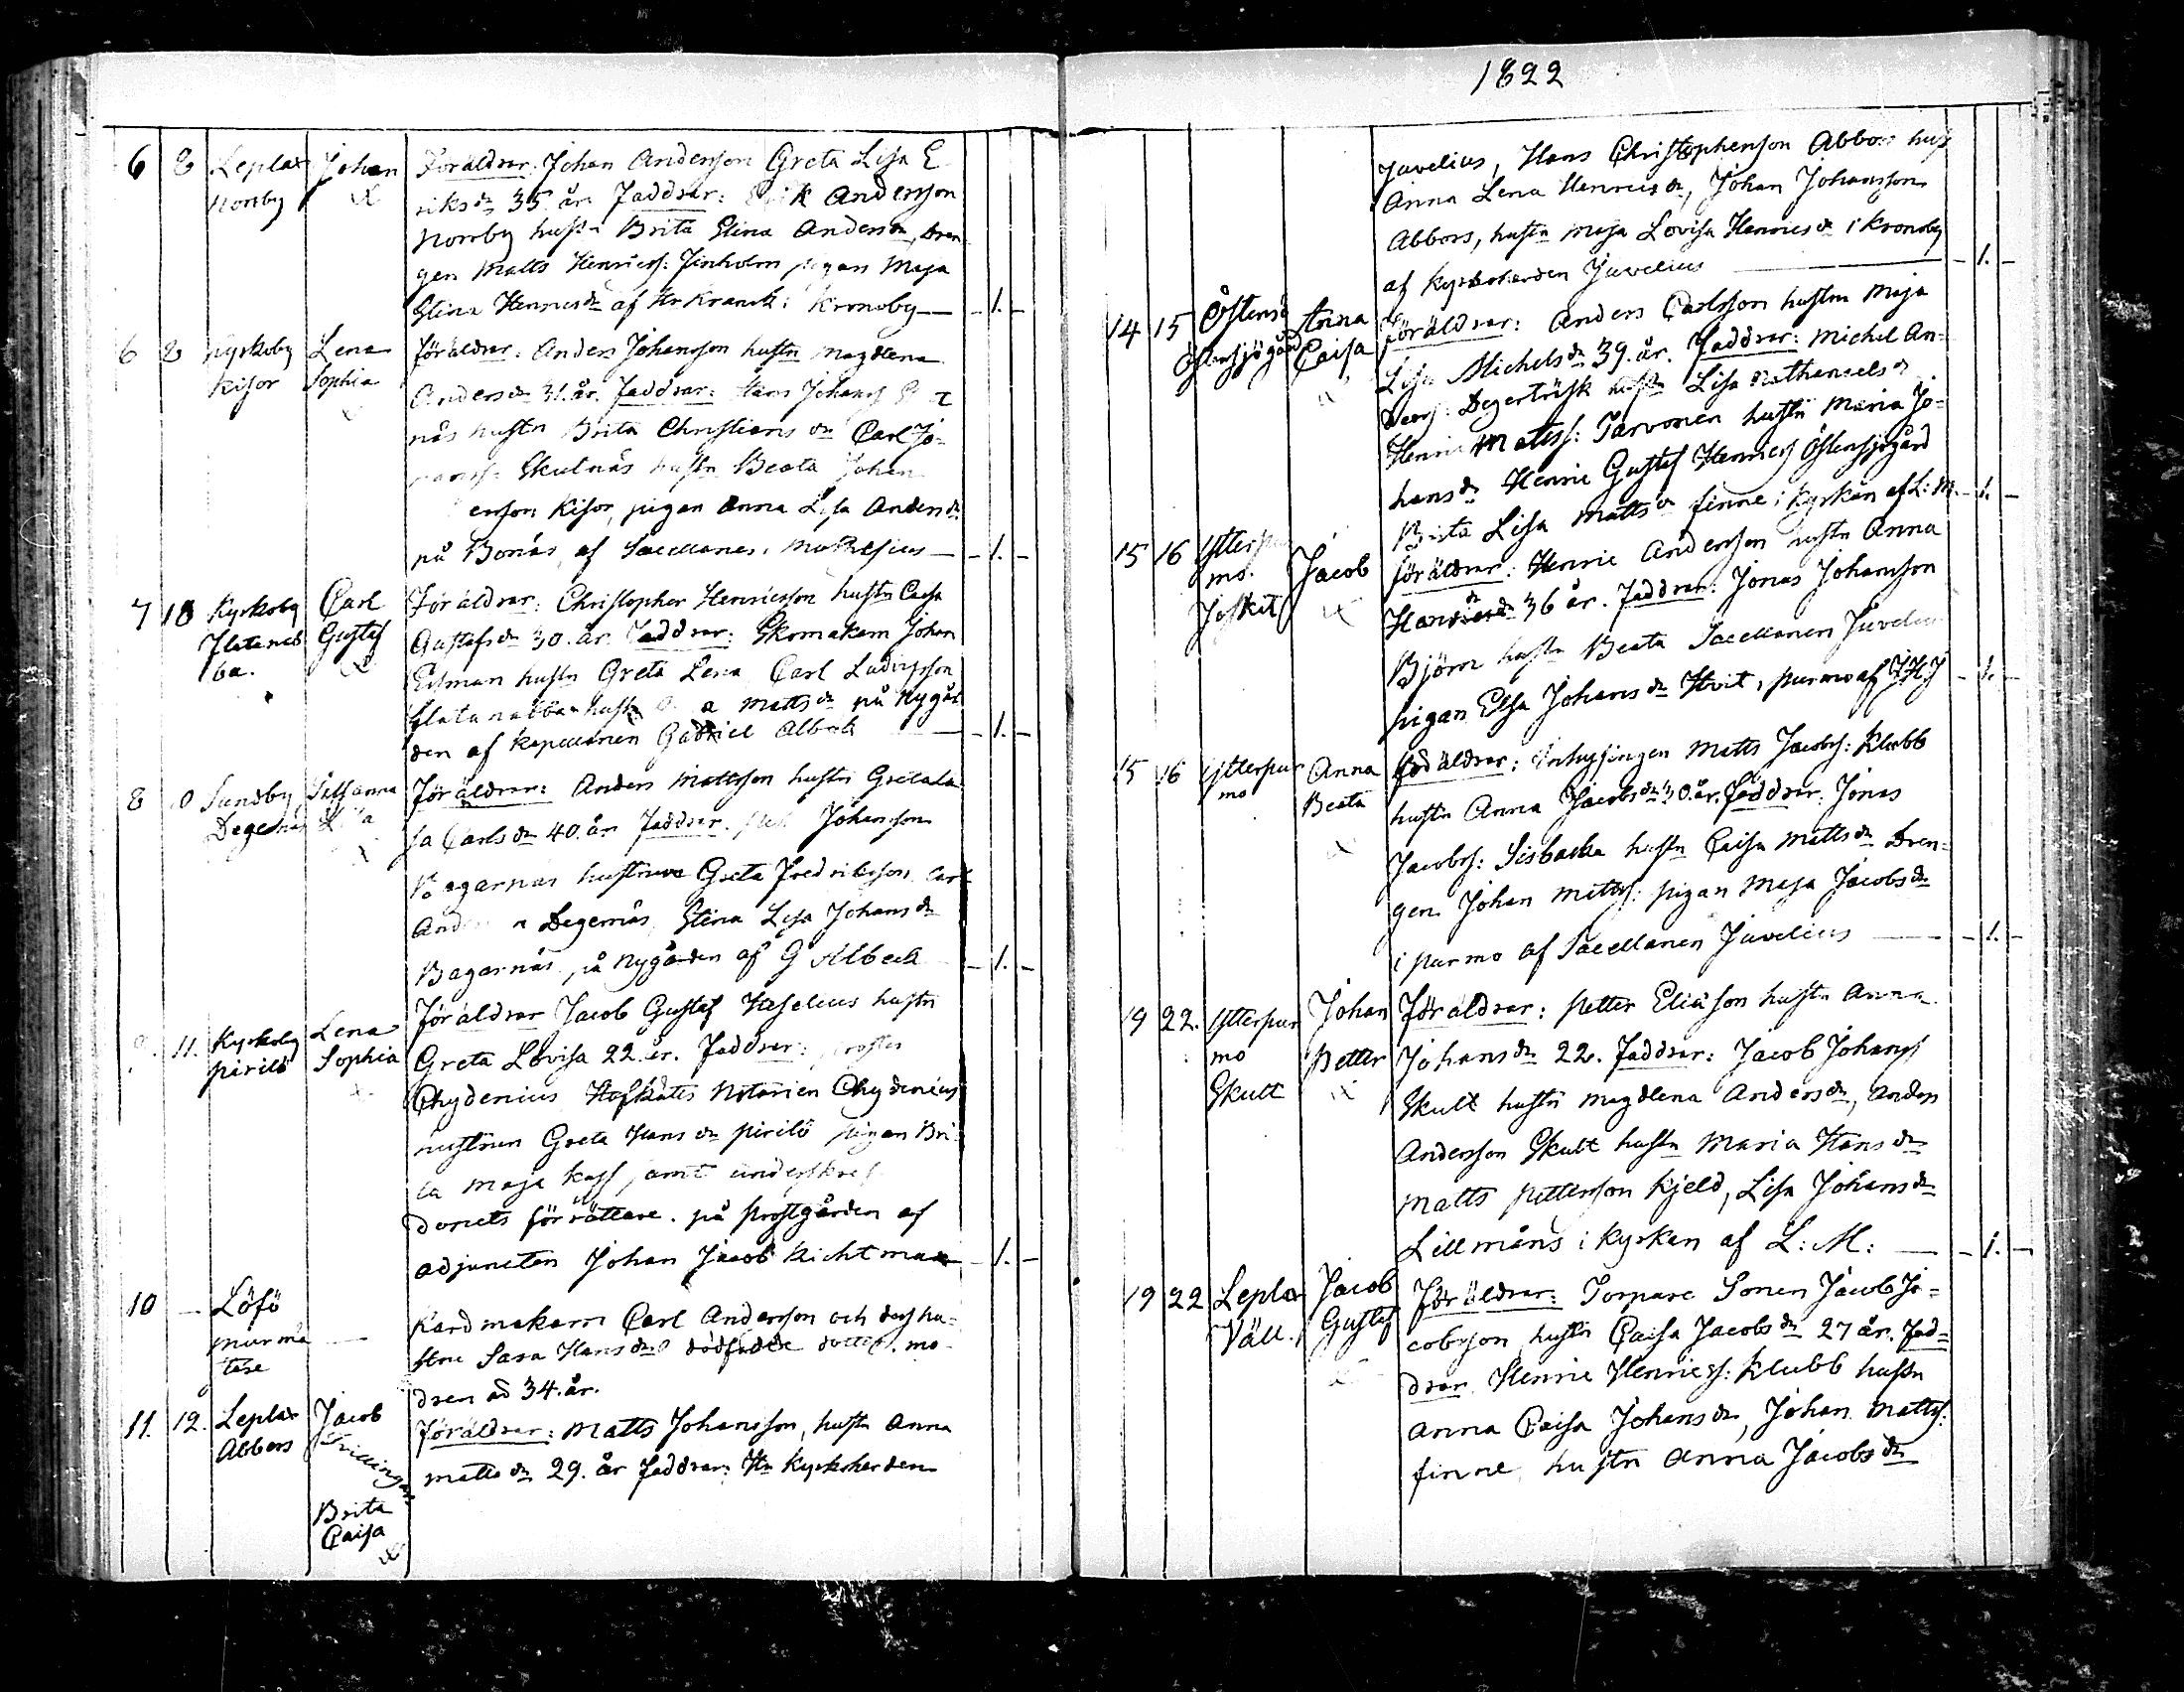 1822
6 8 Leplax Johan Föräldrar: Johan Andersson Greta Lisa E
Norrby riksdr 35. år. Faddrar: Erik Andersson
Norrby hustr Brita Stina Andersdr, Dren
gen Matts Henricss: Finholm pigan Maja
Stina Henricsdr af Hr Kranck i Kronoby — 1. —
6 8 Kyrkoby Lena föräldrar: Anders Johansson hustn Magdlena
Kisor Sophia Andersdr 31. år. Faddrar: Hans Johanss
näs hustn Brita Christiansdr Carl Jo-
Skutnäs hustn Beata Johan
ersson Kisor, pigan Anna Lisa Andersdr
på Bonäs, af Sacellanen — 1. —
7 18 Kyrkoby Carl Föräldrar: Christopher Henricsson hustn Caisa
Flatanab Gustaf Gustafsdr 30. år. Faddrar: Skomakarn Johan
ba. Edman hustn Greta Lena Carl Ludvigsson
Flatanabba hustn a Mattsdr på Nygår
den af Kapellanen Gabriel Albeck — 1. —
8 0 Sundby Sussanna Föräldrar: Anders Mattsson hustn Greta Li
Degernäs Lisa sa Carlsdr 40. år. Faddrar. Johansson
Bagarnäs hustrun Greta Fredriksson Carl
Anders Degernäs, Stina Lisa Johansdr
Bagarnäs, på Nygården af G Albeck — 1. —
11. Kyrkoby Lena Föräldrar Jacob Gustaf Heselius hustn
Pirilö Sophia Greta Lovisa 22 år. Faddrar: prosten
Chydenius Hofrätts Notarien Chydenius
hustrun Greta Hansdr Pirilö pigan Bri
ta Maja Kass samt underskref
donets förrättare. på prostgården af
adjuncten Johan Jacob Kichtman — 1. —
10 — Löfö — Kardmakarn Carl Andersson och dess hu-
Murmä stru Sara Hansdr dödfödde dotter. mo-
tare dren åd 34. år.
11. 12. Leplax Jacob föräldrar: Matts Johansson, hustn Anna
Abbors Trillingar Mattsdr 29. år Faddrar: Hr Kyrkoherden
Brita
Caisa
Juvelius, Hans Christophersson Abbors hust
Anna Lena Henricsdr, Johan Johansson
Abbors, hustn Maja Lovisa Henricsdr i Kronoby
af Kyrkoherden Juvelius — 1. —
14 15 Östensö Anna Föräldrar: Anders Carlsson hustru Maja
Östensjögård Caisa Lisa Michelsdr 39. år. Faddrar: Michel An-
Dersss: Degerträsk hustn Lisa Nathanaelsdr
Henric Matss: Tarvonen hustn Maria Jo-
hansdr Henric Gustaf Henricss Östensjögård
Brita Lisa Mattsdr finne i Kyrkan af L: M. — 1. —
15 16 Ytterpur Jacob föräldrar: Henric Andersson hustn Anna
mo. Henricsdr 36 år. Faddrar: Jonas Johansson
Joskit Björn hustn Beata Sacellanen Juvelius
pigan Elsa Johansdr Hvit, purmo af JHJ — 1. —
15 16 Ytterpur Anna föräldrar: Inhysingen Matts Jacobss: Klubb
mo Beata hustn Anna Jacobsdr 30. år. Faddrar: Jonas
Jacobss: Sisbacka hustn Caisa Mattsdr Dren-
gen Johan Mattss: pigan Maja Jacobsdr
i purmo af Sacellanen Juvelius — 1. —
19 22. Ytterpur Johan Föräldrar: Petter Eliasson hustn Anna
mo Petter Johansdr 22. Faddrar: Jacob Johanss
Skutt Skutt hustn Magdlena Andersdr, Anders
Andersson Skutt hustn Maria Hansdr
Matts Pettersson Kjeld, Lisa Johansdr
Lillmåns i Kyrkan af L: M: — 1. —
19 22 Leplax Jacob Föräldrar: Torpare Sonen Jacob Ja-
Väll. Gustaf cobsson hustn Caisa Jacobsdr 27 år. Fad-
drar. Henric Henricss: Klubb hustn
Anna Caisa Johansdr, Johan Mattss:
finne hustn Anna Jacobsdr